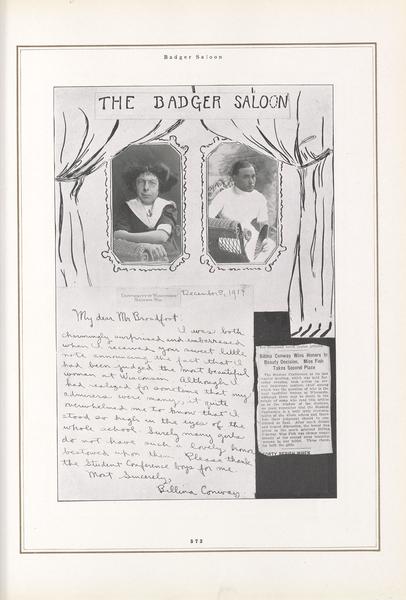 Badger Saloon
THE BADGER SALOON
UNIVERSITY OF WISCONSIN
MADISON, WIS.
December 8, 1919
My dear Mr Broadfoot:
I was both
charmingly surprised and embarrassed
when I received your sweet little
note announcing the fact that I
had been judged the most beautiful
woman at Wisconsin. Although I
had realized for sometime that my
admirers were many, it quite
overwhelmed me to know that I
stood so high in the eyes of the
whole school. Surely many girls
do not have such a lovely honor
bestowed upon them. Please thank
the Student Conference boys for me.
Most Sincerely,
Billina Conway.
Billina Conway Wins Honors in
Beauty Decision. Miss Fish
Takes Second Place
572